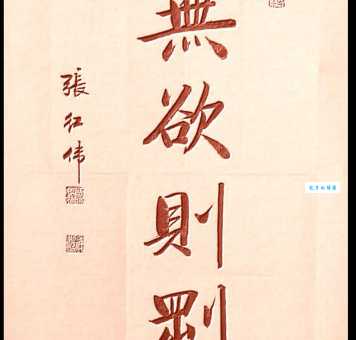 無欲則剛
張红伟